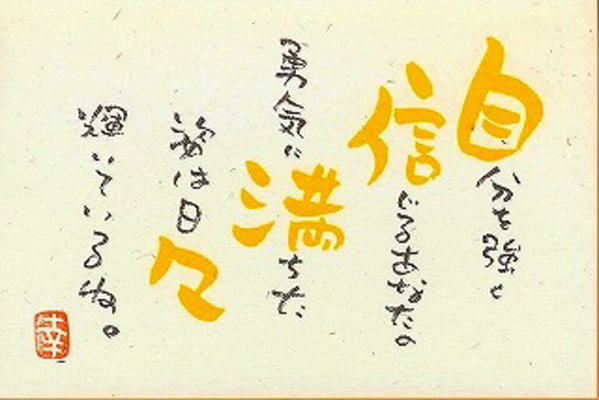 自分を強く
信じるあなたの
勇気に満ちた
姿は日々
輝いているね。
幸